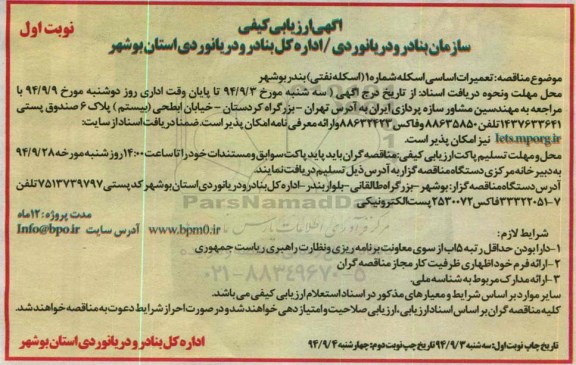 نوبت اول
آگهی ارزیابی کیفی
سازمان بنادر و دریانوردی / اداره کل بنادر و دریانوردی استان بوشهر
موضوع مناقصه: تعمیرات اساسی اسکله شماره ۱ (اسکله نفتی) بندر بوشهر
محل مهلت ونحوه دریافت اسناد: از تاریخ درج آگهی ( سه شنبه مورخ ۹۴/۹/۳ تا پایان وقت اداری روز دوشنبه مورخ ۹۴/۹/۹ با
مراجعه به مهندسین مشاور سازه پردازی ایران به آدرس تهران - بزرگراه کردستان - خیابان ابطحی (بیستم ) پلاک ۶ صندوق پستی
۱۴۳۷۶۳۳۶۴۱ تلفن ۸۸۶۳۵۸۵۰ وفاکس ۸۸۶۳۲۴۲۳ وارائه معرفی نامه امکان پذیر است. ضمنا دریافت اسناد از سایت:
Iets.mporg.ir نیز امکان پذیر است.
محل ومهلت تسلیم پاکت ارزیابی کیفی: مناقصه گران باید پاید پاکت سوابق و مستندات خود را تا ساعت ۱۴:۰۰ روز شنبه مورخه ۹۴/۹/۲۸
به دبیرخانه مرکزی دستگاه مناقصه گزار به آدرس ذیل تسلیم دریافت نمایند.
آدرس دستگاه مناقصه گزار: بوشهر - بزرگراه طالقانی - بلوار بندر - اداره کل بنادر و دریانوردی استان بوشهر کد پستی ۷۵۱۳۷۳۹۷۹۷ تلفن
۷-۳۳۳۲۲۰۵۱ فاکس ۲۵۳۰۰۷۲ پست الکترونیکی
Info@bpo.ir آدرس سایت www.bpm0.ir
مدت پروژه: ۱۲ ماه
شرایط لازم:
۱-دارا بودن حداقل رتبه ۵ آب از سوی معاونت برنامه ریزی و نظارت راهبری ریاست جمهوری
۲-ارائه فرم خود اظهاری ظرفیت کار مجاز مناقصه گران
۳-ارائه مدارک مربوط به شناسه ملی.
سایر موارد بر اساس شرایط و معیارهای مذکور در اسناد استعلام ارزیابی کیفی می باشد.
کلیه مناقصه گران بر اساس اسناد ارزیابی، ارزیابی صلاحیت و امتیاز دهی خواهند شد و در صورت احراز شرایط دعوت به مناقصه خواهند شد.
تاریخ چاپ نوبت اول: سه شنبه ۹۴/۹/۳ تاریخ چاپ نوبت دوم: چهارشنبه ۹۴/۹/۴
اداره کل بنادر و دریانوردی استان بوشهر
ParsNamadData
۰۲۱-۸۸۳۴۹۶۷۰-۵